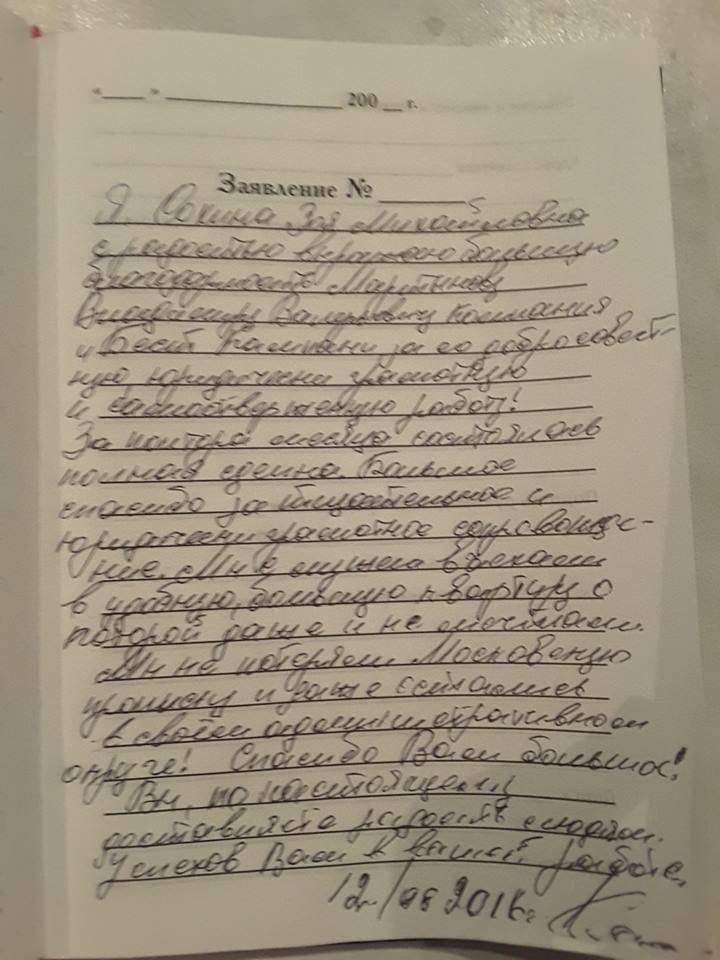 « » 200 г.
Заявление №
Я, Сокина Зоя Михайловна
с радостью выражаю большую
благодарность Мартынову
Владимиру Валерьевичу компания
и Бест Компани за
ную, юридически грамотную
и работу!
За полтора месяца состоялась
полная сделка. Большое
спасибо за внимательное и
юридически грамотное сопровожде-
ние. Мы с въехали
в удобную, большую квартиру о
которой даже и не мечтали.
Мы не потеряли Московскую
прописку и даже остались
в своём административном
округе! Спасибо Вам большое!
Вы, по настоящему
доставляете радость людям.
Успехов Вам в вашей работе.
12/ 2016г